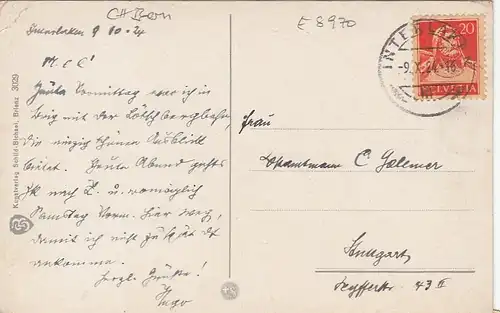 CH Bern
E 8970
Interlaken 9 10.24
M. l. C!
Heute Vormittag war ich in
Brig mit der Lötschbergbahn,
die einzig schönen Ausblick
bietet. Heute Abend gehts
nach Z. u. womöglich
Samstag Vorm. hier weg,
damit ich nicht zu spät
ankomme.
Herzl. Grüße!
Hugo
Kunstverlag Schild-Bichsel, Brienz 3029
INTERLAKEN
-9.X.24
20
HELVETIA
Frau
C. Gollmer
Stuttgart
Seyfferstr. 43 II